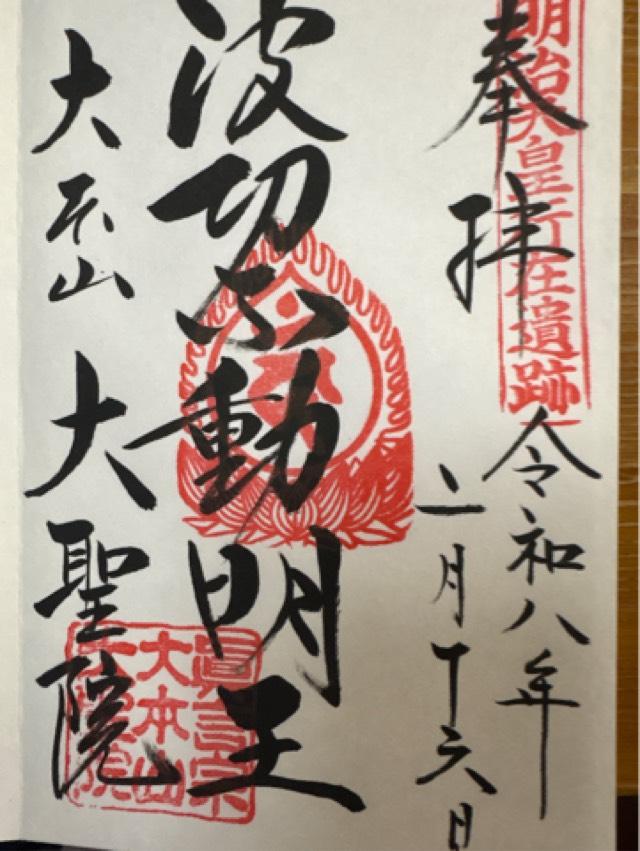 明治天皇行在遺跡
奉拝
令和八年
二月十六日
波切不動明王
大本山 大聖院
眞言宗
大本山
大聖院